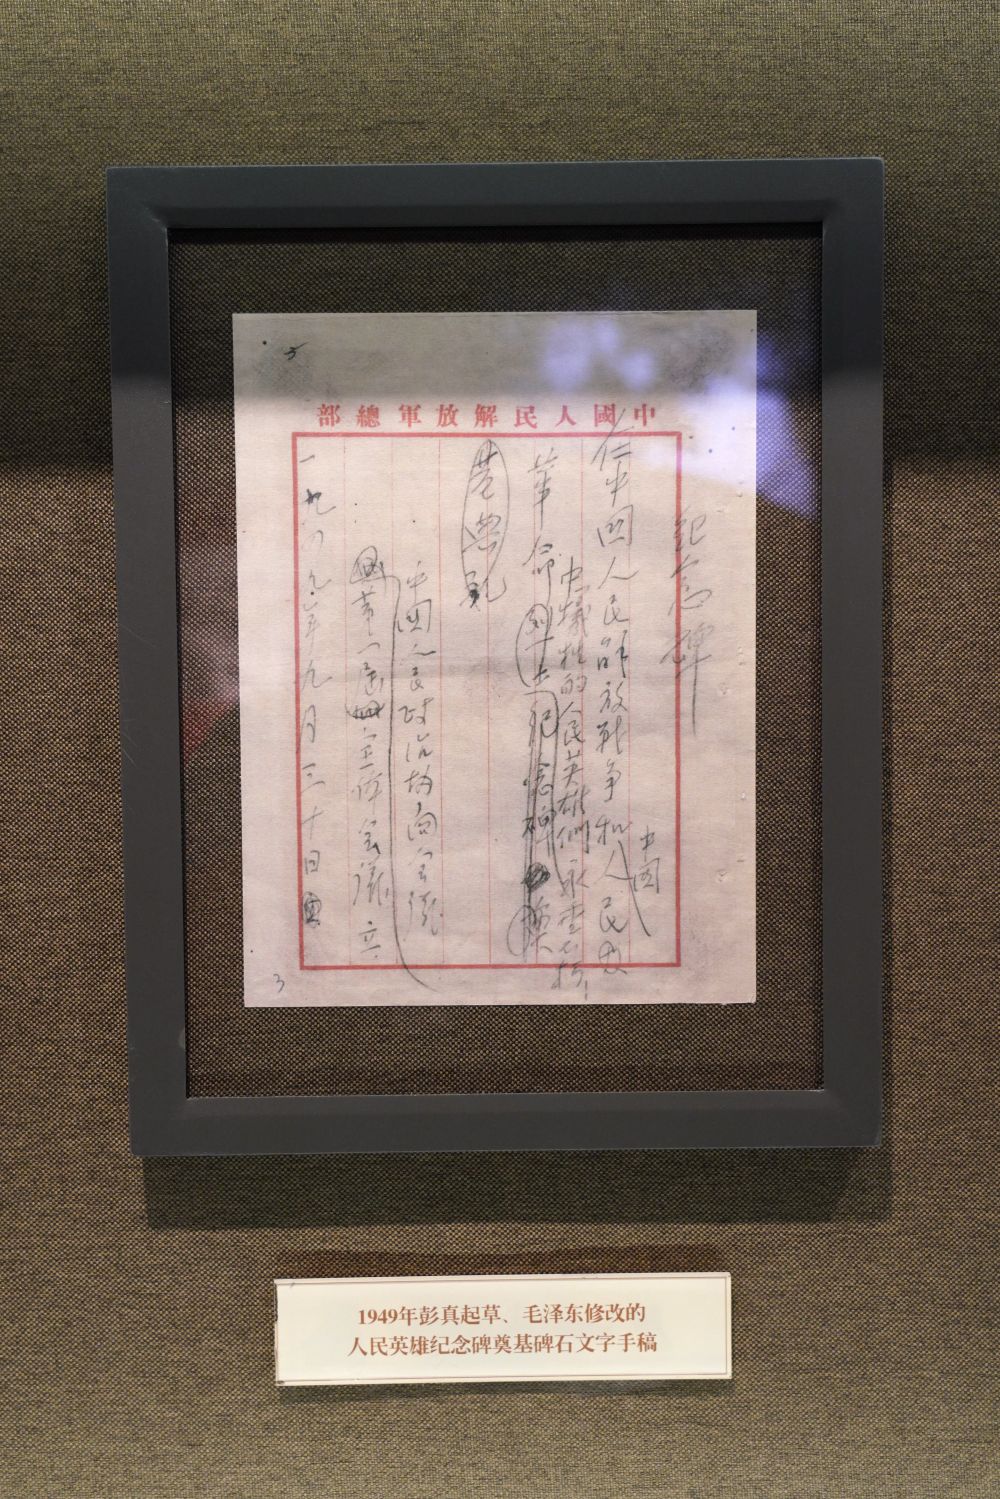 中國人民解放軍總部
紀念碑
在中國人民解放战争和人民
中国
革命
中犧牲的人民英雄們永垂不朽！
紀念碑
奠基典礼
中國人民政治协商会議
第一届全体会議立
一九四九年九月三十日
3
1949年彭真起草、毛泽东修改的
人民英雄纪念碑奠基碑石文字手稿